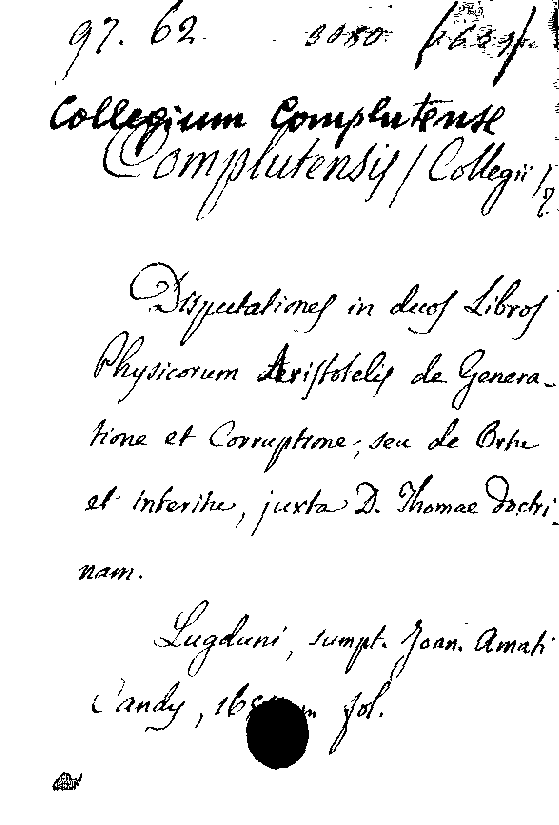 97. 62 3080 (1639)
Collegium Complutense
Complutensis / Collegii /
Disputationes in duos Libros
Physicorum Aristotelis de Genera-
tione et Corruptione, seu de Ortu
et interitu, juxta D. Thomae doctri-
nam.
Lugduni, sumpt. Joan. Amati
Candy, in fol.